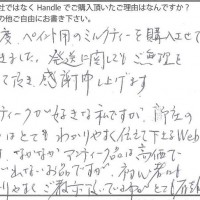 社ではなく Handle でご購入頂いたご理由はなんですか?
の他ご自由にお書き下さい。
度、ペイント用のミルクティーを購入させて
きました。発送に関してもご無理を
て頂き、感謝申し上げます
ティークが好きな私ですが、
はとてもわかりやすく仕立て下さるWeb
す。なかなかアンティーク品は高価で
出ないお品ですが、初心者に
りやすくご教示